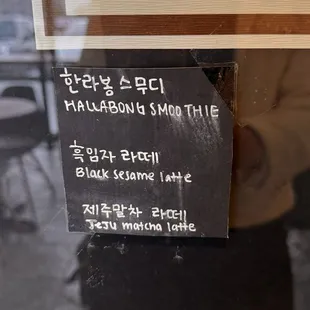 한라봉 스무디
HALLABONG SMOOTHIE
흑임자 라떼
Black sesame latte
제주말차 라떼
JeJu matcha latte